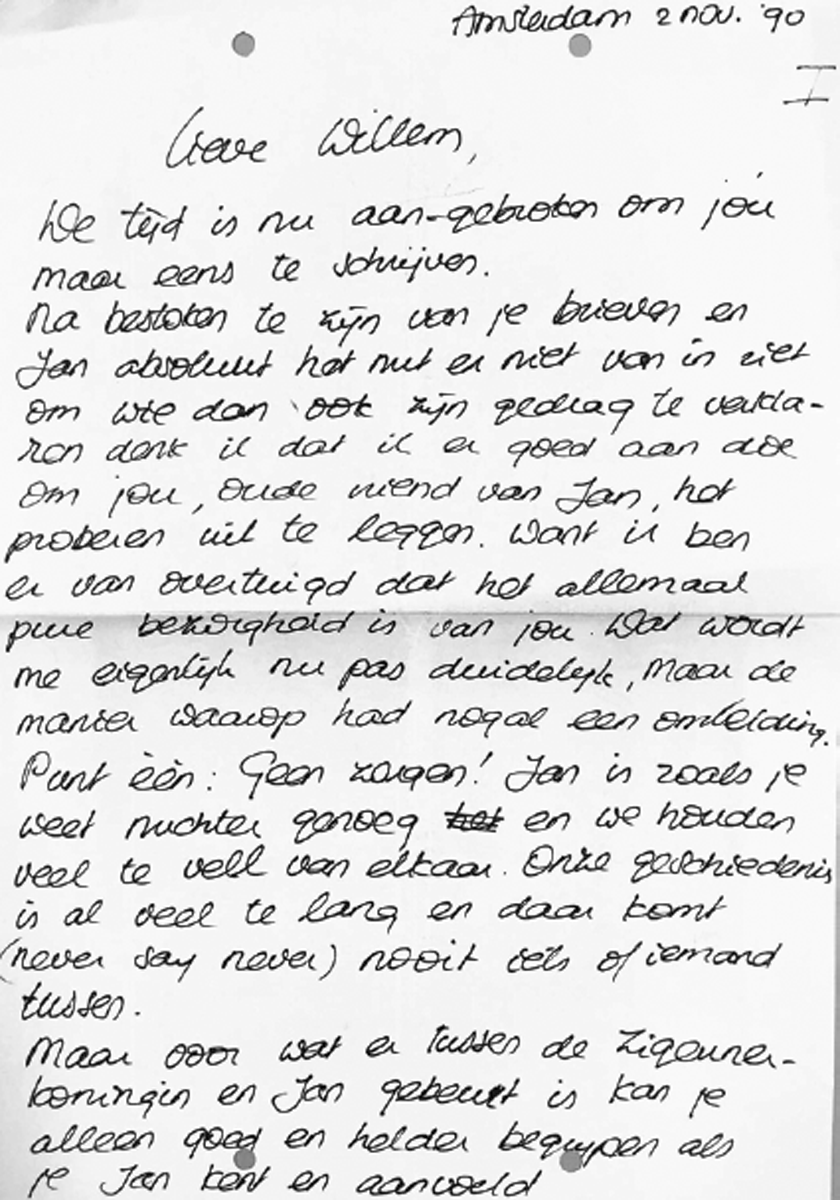 Amsterdam 2 nov. '90
I
Lieve Willem,
De tijd is nu aan-gebroken om jóu
maar eens te schrijven.
Na bestoken te zijn van je brieven en
Jan absoluut het nut er niet van in ziet
om wie dan ook zijn gedrag te verkla-
ren denk ik dat ik er goed aan doe
om jou, oude vriend van Jan, het
proberen uit te leggen. Want ik ben
er van overtuigd dat het allemaal
pure bezorgheid is van jou. Dat wordt
me eigenlijk nu pas duidelijk, maar de
manier waarop had nogal een omleiding.
Punt één: Geen zorgen! Jan is zoals je
weet nuchter genoeg het en we houden
veel te vell van elkaar. Onze geschiedenis
is al veel te lang en daar komt
(never say never) nooit iets of iemand
tussen.
Maar voor wat er tussen de Zigeuner-
koningin en Jan gebeurt is kan je
alleen goed en helder begrijpen als
je Jan kent en aanvoeld